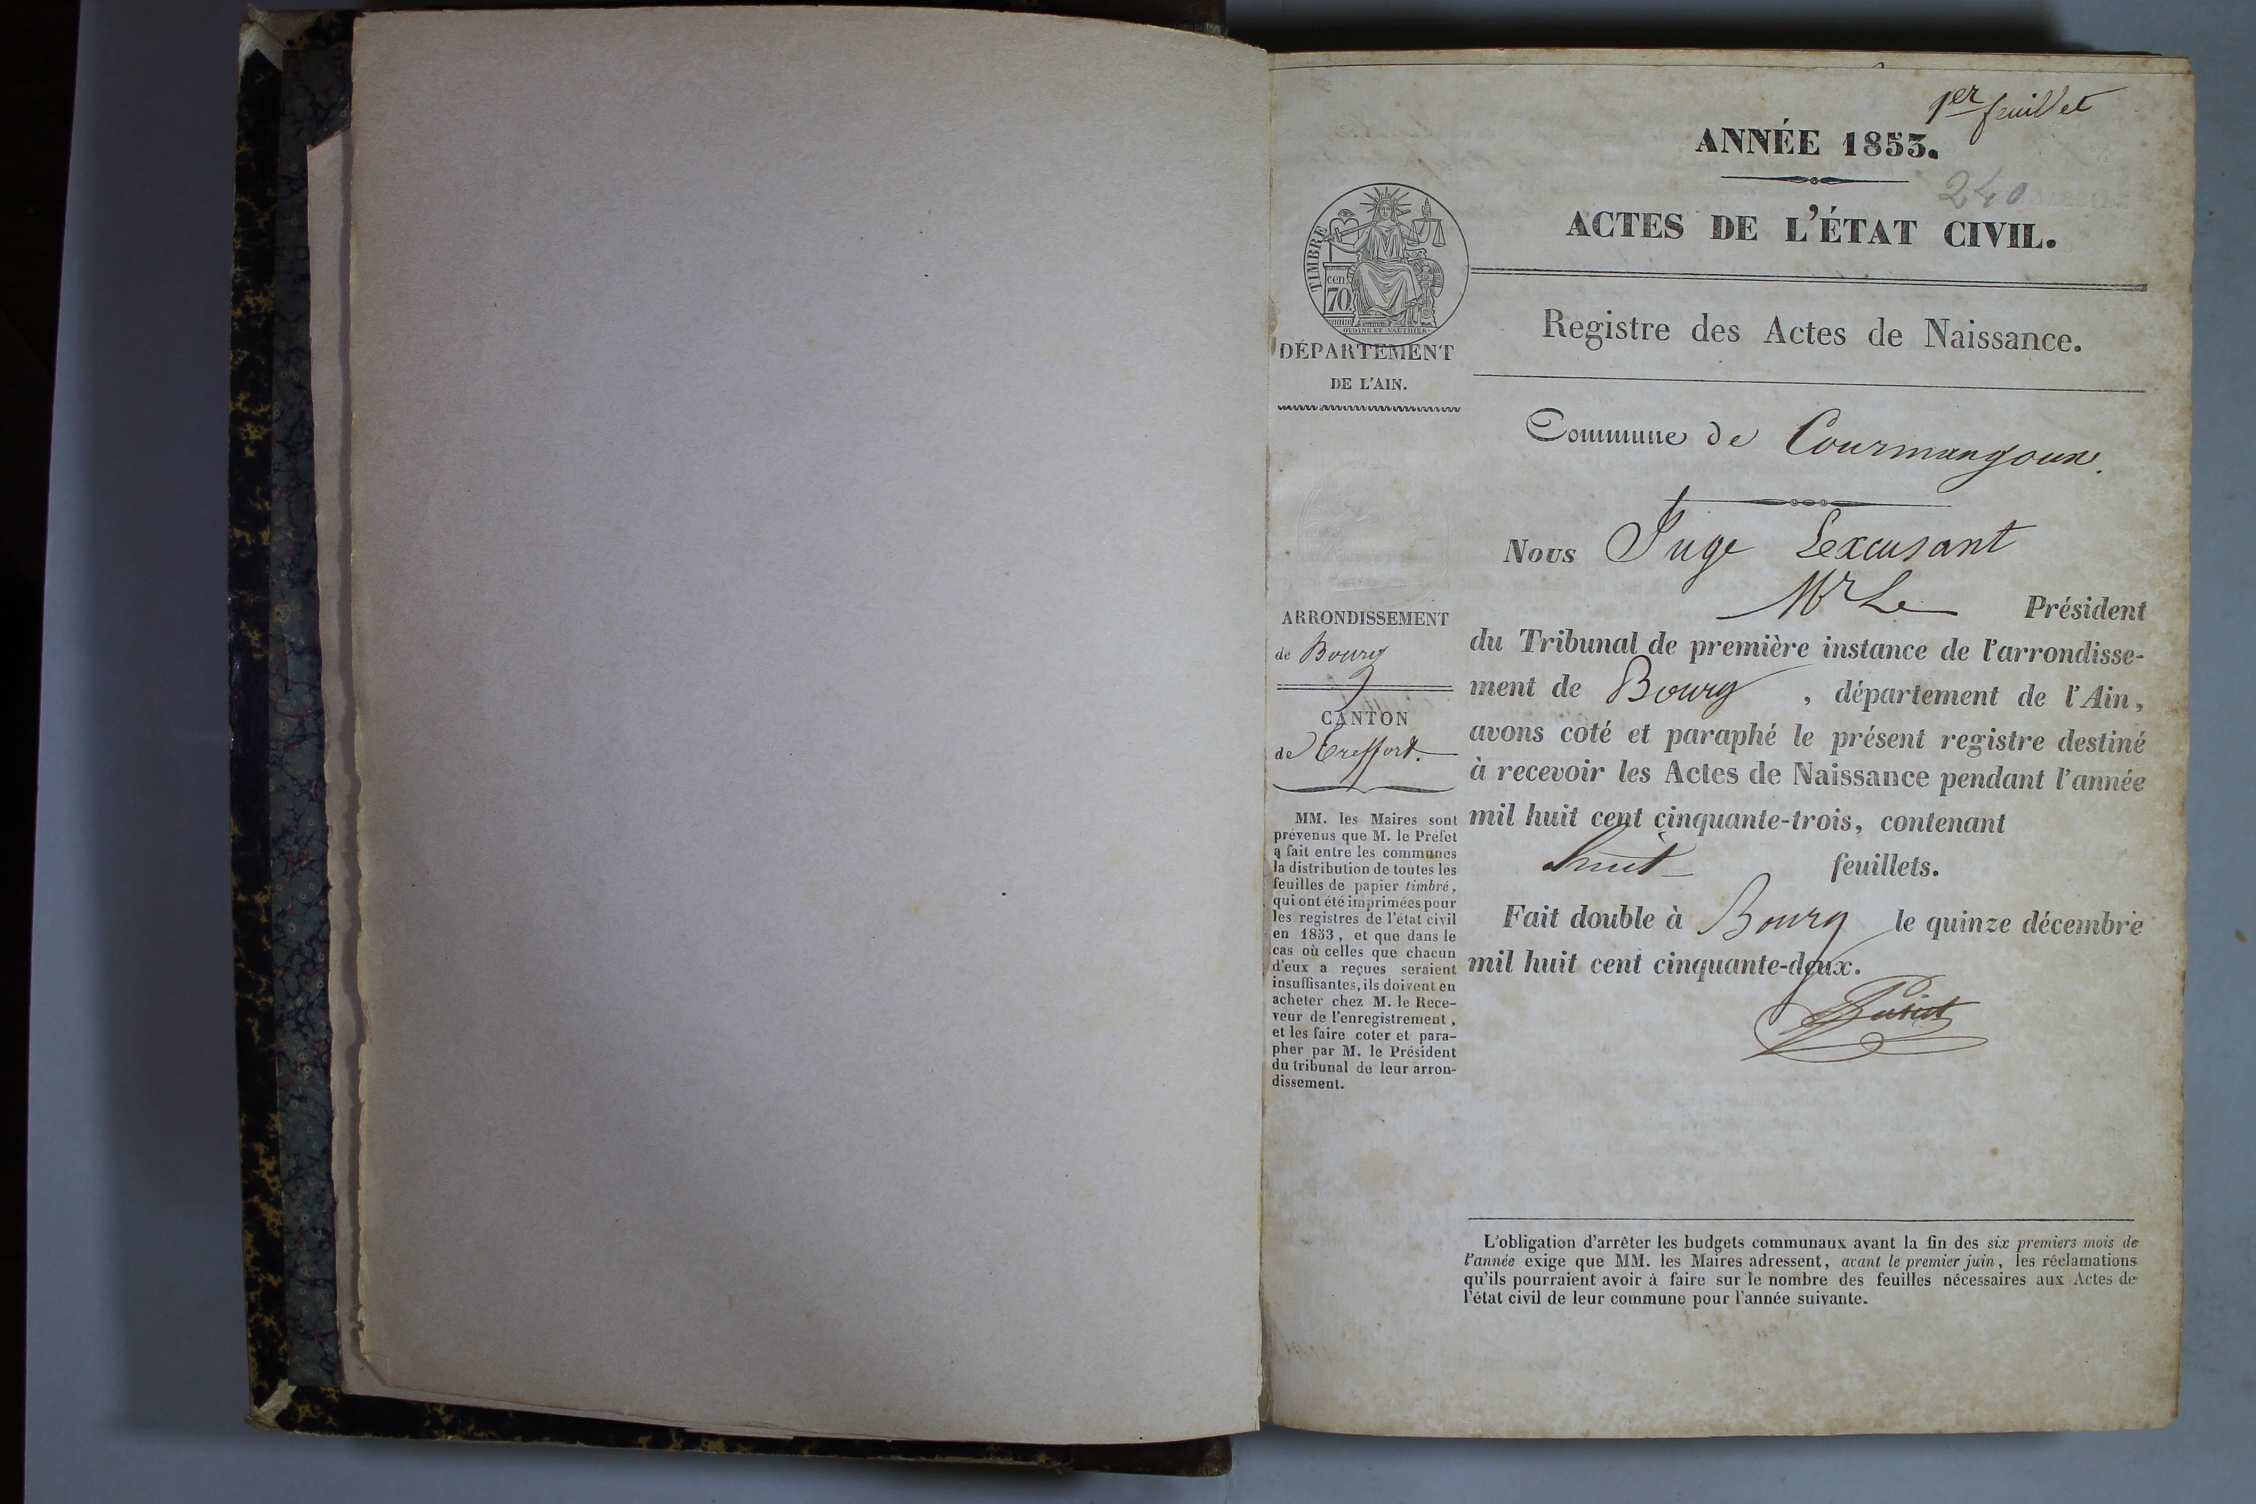 1er feuillet
ANNÉE 1853.
240
ACTES DE L'ÉTAT CIVIL.
TIMBRE
cen
70
DÉPARTEMENT
DE L'AIN.
Registre des Actes de Naissance.
Commune de Courmangoux.
Nous Juge
Mr Le Président
du Tribunal de première instance de l'arrondisse-
ment de Bourg , département de l'Ain,
avons coté et paraphé le présent registre destiné
à recevoir les Actes de Naissance pendant l'année
mil huit cent cinquante-trois, contenant
huit feuillets.
Fait double à Bourg le quinze décembre
mil huit cent cinquante-deux.
ARRONDISSEMENT
de Bourg
CANTON
de Treffort.
MM. les Maires sont
prévenus que M. le Préfet
a fait entre les communes
la distribution de toutes les
feuilles de papier timbré,
qui ont été imprimées pour
les registres de l'état civil
en 1853, et que dans le
cas où celles que chacun
d'eux a reçues seraient
insuffisantes, ils doivent en
acheter chez M. le Rece-
veur de l'enregistrement,
et les faire coter et para-
pher par M. le Président
du tribunal de leur arron-
dissement.
L'obligation d'arrêter les budgets communaux avant la fin des six premiers mois de
l'année exige que MM. les Maires adressent, avant le premier juin, les réclamations
qu'ils pourraient avoir à faire sur le nombre des feuilles nécessaires aux Actes de
l'état civil de leur commune pour l'année suivante.